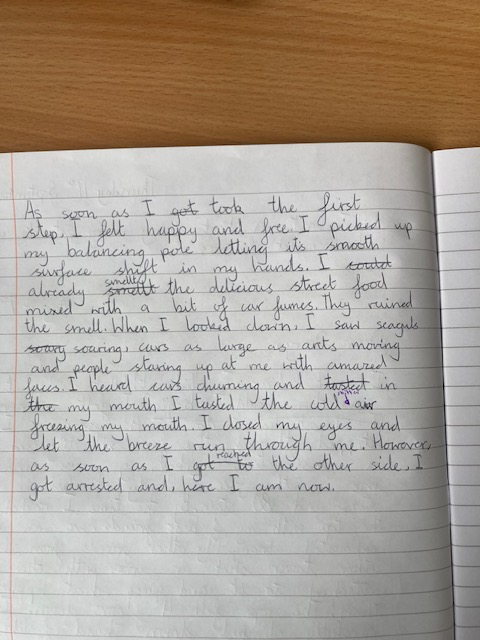 As soon as I got took the first
step, I felt happy and free. I picked up
my balancing pole letting its smooth
surface shift in my hands. I could
already smellt smelled the delicious street food
mixed with a bit of car fumes. They ruined
the smell. When I looked down, I saw seaguls
soary soaring, cars as large as ants moving
and people staring up at me with amazed
faces. I heard cars churning and tasted in
the my mouth I tasted the cold air
freezing my mouth. I closed my eyes and
let the breeze run through me. However,
as soon as I got to reached the other side, I
got arrested and, here I am now.